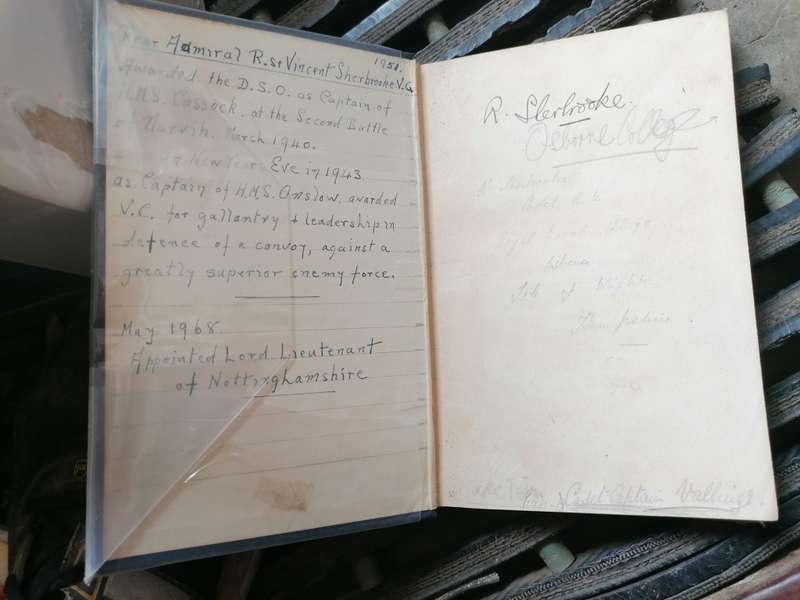 1950.
Rear Admiral R. St Vincent Sherbrooke V.C.
Awarded the D.S.O. as Captain of
H.M.S. Cossack, at the Second Battle
of Narvik, March 1940.
New Years Eve in 1943
as Captain of H.M.S. Onslow, awarded
V.C. for gallantry & leadership in
defence of a convoy, against a
greatly superior enemy force.
May 1968.
Appointed Lord Lieutenant
of Nottinghamshire
R. Sherbrooke.
Osborne College
R. Sherbrooke
Isle of Wight
Cadet Captain